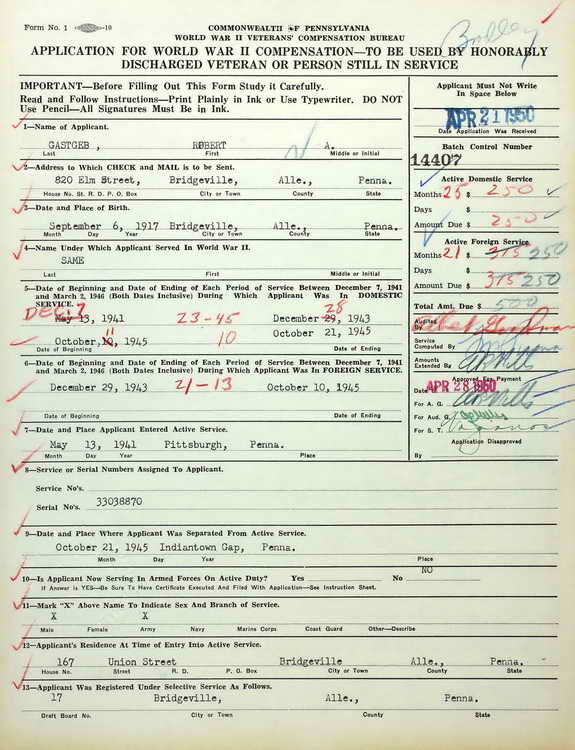 Form No. 1 —10
COMMONWEALTH OF PENNSYLVANIA
WORLD WAR II VETERANS' COMPENSATION BUREAU
APPLICATION FOR WORLD WAR II COMPENSATION—TO BE USED BY HONORABLY
DISCHARGED VETERAN OR PERSON STILL IN SERVICE
IMPORTANT—Before Filling Out This Form Study it Carefully.
Read and Follow Instructions—Print Plainly in Ink or Use Typewriter. DO NOT
Use Pencil—All Signatures Must Be in Ink.
Applicant Must Not Write
In Space Below
APR 21 1950
Date Application Was Received
Batch Control Number
14407
Active Domestic Service
Months 25 $ 250
Days $
Amount Due $ 250
Active Foreign Service
Months 21 $ 375 250
Days $
Amount Due $ 375 250
Total Amt. Due $ 500
Audited
By
Service
Computed By
Amounts
Extended By
Approved For Payment
Date APR 28 1950
For A. G.
For Aud. G.
For S. T.
Application Disapproved
By
1—Name of Applicant.
GASTGEB , ROBERT A.
Last First Middle or Initial
2—Address to Which CHECK and MAIL is to be Sent.
820 Elm Street, Bridgeville, Alle., Penna.
House No. St. R. D. P. O. Box City or Town County State
3—Date and Place of Birth.
September 6, 1917 Bridgeville, Alle., Penna.
Month Day Year City or Town County State
4—Name Under Which Applicant Served In World War II.
SAME
Last First Middle or Initial
5—Date of Beginning and Date of Ending of Each Period of Service Between December 7, 1941
and March 2, 1946 (Both Dates Inclusive) During Which Applicant Was In DOMESTIC
SERVICE.
DEC. 7 28
May 13, 1941 23-45 December 29, 1943
11
October, 10, 1945 10 October 21, 1945
Date of Beginning Date of Ending
6—Date of Beginning and Date of Ending of Each Period of Service Between December 7, 1941
and March 2, 1946 (Both Dates Inclusive) During Which Applicant Was In FOREIGN SERVICE.
December 29, 1943 21-13 October 10, 1945
Date of Beginning Date of Ending
7—Date and Place Applicant Entered Active Service.
May 13, 1941 Pittsburgh, Penna.
Month Day Year Place
8—Service or Serial Numbers Assigned To Applicant.
Service No's.
Serial No's. 33038870
9—Date and Place Where Applicant Was Separated From Active Service.
October 21, 1945 Indiantown Gap, Penna.
Month Day Year Place
10—Is Applicant Now Serving In Armed Forces On Active Duty? Yes No NO
If Answer is YES—Be Sure To Have Certificate Executed And Filed With Application—See Instruction Sheet.
11—Mark "X" Above Name To Indicate Sex and Branch of Service.
X X
Male Female Army Navy Marine Corps Coast Guard Other—Describe
12—Applicant's Residence At Time of Entry Into Active Service.
167 Union Street Bridgeville Alle., Penna.
House No. Street R. D. P. O. Box City or Town County State
13—Applicant Was Registered Under Selective Service As Follows.
17 Bridgeville, Alle., Penna.
Draft Board No. City or Town County State